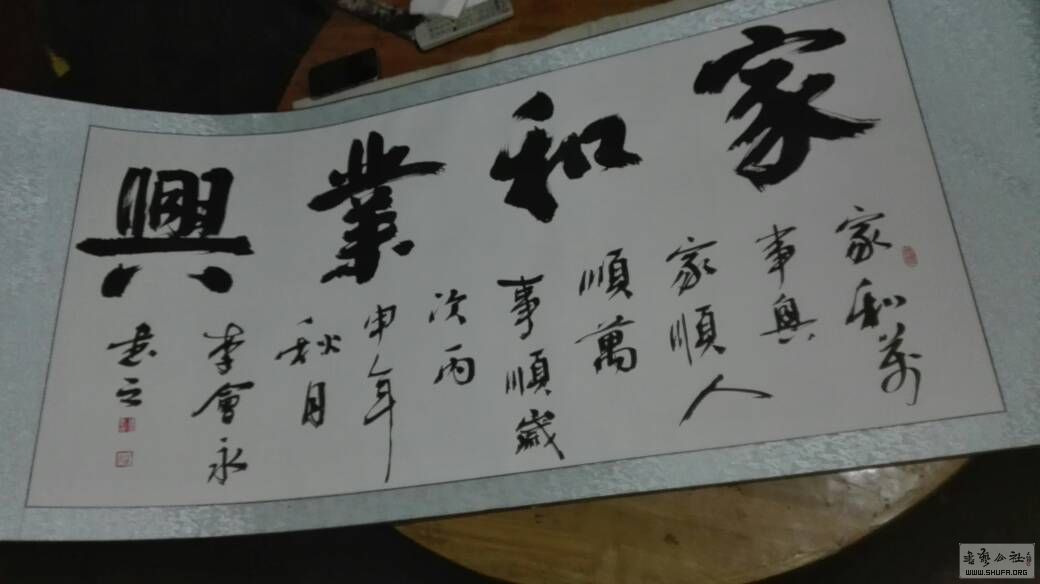 家和業興
家和萬
事興
家順人
順萬
事順歲
次丙
申年
秋月
李會永
書之
書藝公社
WWW.SHUFA.ORG